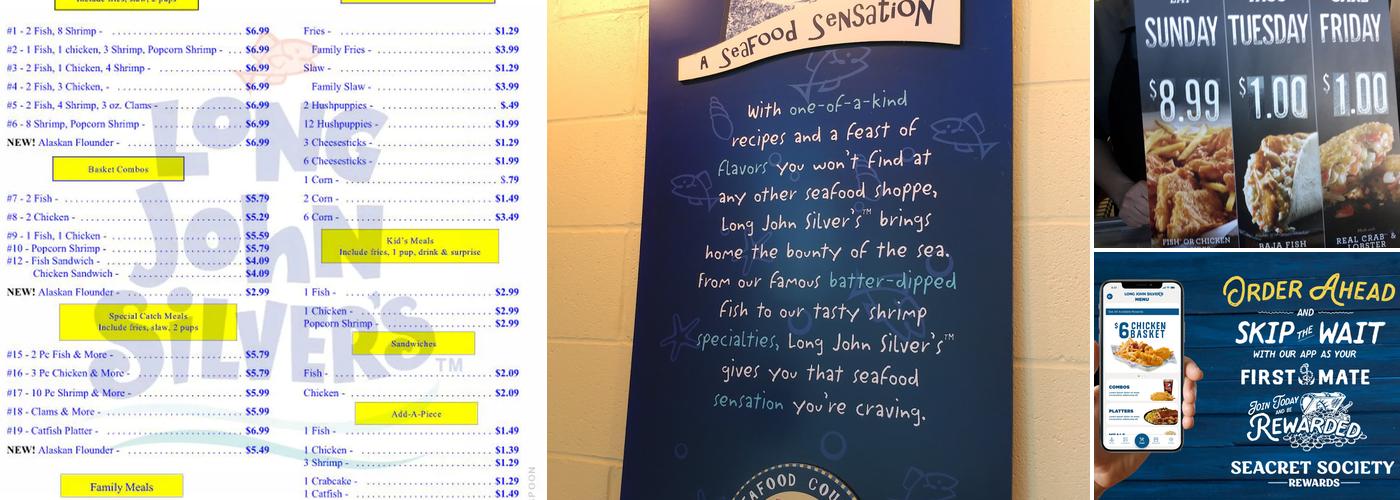 Include fries, slaw, 2 pups
#1 - 2 Fish, 8 Shrimp - $6.99
#2 - 1 Fish, 1 chicken, 3 Shrimp, Popcorn Shrimp - $6.99
#3 - 2 Fish, 1 Chicken, 4 Shrimp - $6.99
#4 - 2 Fish, 3 Chicken, - $6.99
#5 - 2 Fish, 4 Shrimp, 3 oz. Clams - $6.99
#6 - 8 Shrimp, Popcorn Shrimp - $6.99
NEW! Alaskan Flounder - $6.99
Basket Combos
#7 - 2 Fish - $5.79
#8 - 2 Chicken - $5.29
#9 - 1 Fish, 1 Chicken - $5.59
#10 - Popcorn Shrimp - $5.79
#12 - Fish Sandwich - $4.09
Chicken Sandwich - $4.09
NEW! Alaskan Flounder - $2.99
Special Catch Meals
Include fries, slaw, 2 pups
#15 - 2 Pc Fish & More - $5.79
#16 - 3 Pc Chicken & More - $5.79
#17 - 10 Pc Shrimp & More - $5.99
#18 - Clams & More - $5.99
#19 - Catfish Platter - $6.99
NEW! Alaskan Flounder - $5.49
Family Meals
Fries - $1.29
Family Fries - $3.99
Slaw - $1.29
Family Slaw - $3.99
2 Hushpuppies - $.49
12 Hushpuppies - $1.99
3 Cheesesticks - $1.29
6 Cheesesticks - $1.99
1 Corn - $.79
2 Corn - $1.49
6 Corn - $3.49
Kid's Meals
Include fries, 1 pup, drink & surprise
1 Fish - $2.99
1 Chicken - $2.99
Popcorn Shrimp - $2.99
Sandwiches
Fish - $2.09
Chicken - $2.09
Add-A-Piece
1 Fish - $1.49
1 Chicken - $1.39
3 Shrimp - $1.29
1 Crabcake - $1.29
1 Catfish - $1.49
LONG
JOHN
SILVER'S™
A Seafood Sensation
With one-of-a-kind
recipes and a feast of
flavors you won't find at
any other seafood shoppe,
Long John Silver's™ brings
home the bounty of the sea.
From our famous batter-dipped
fish to our tasty shrimp
specialties, Long John Silver's™
gives you that seafood
sensation you're craving.
SUNDAY TUESDAY FRIDAY
$8.99 $1.00 $1.00
FISH OR CHICKEN
BAJA FISH
REAL CRAB &
LOBSTER
LONG JOHN SILVER'S
MENU
$6 CHICKEN
BASKET
COMBOS
PLATTERS
ORDER AHEAD
AND
SKIP THE WAIT
WITH OUR APP AS YOUR
FIRST MATE
JOIN TODAY
AND BE
REWARDED
SEACRET SOCIETY
REWARDS